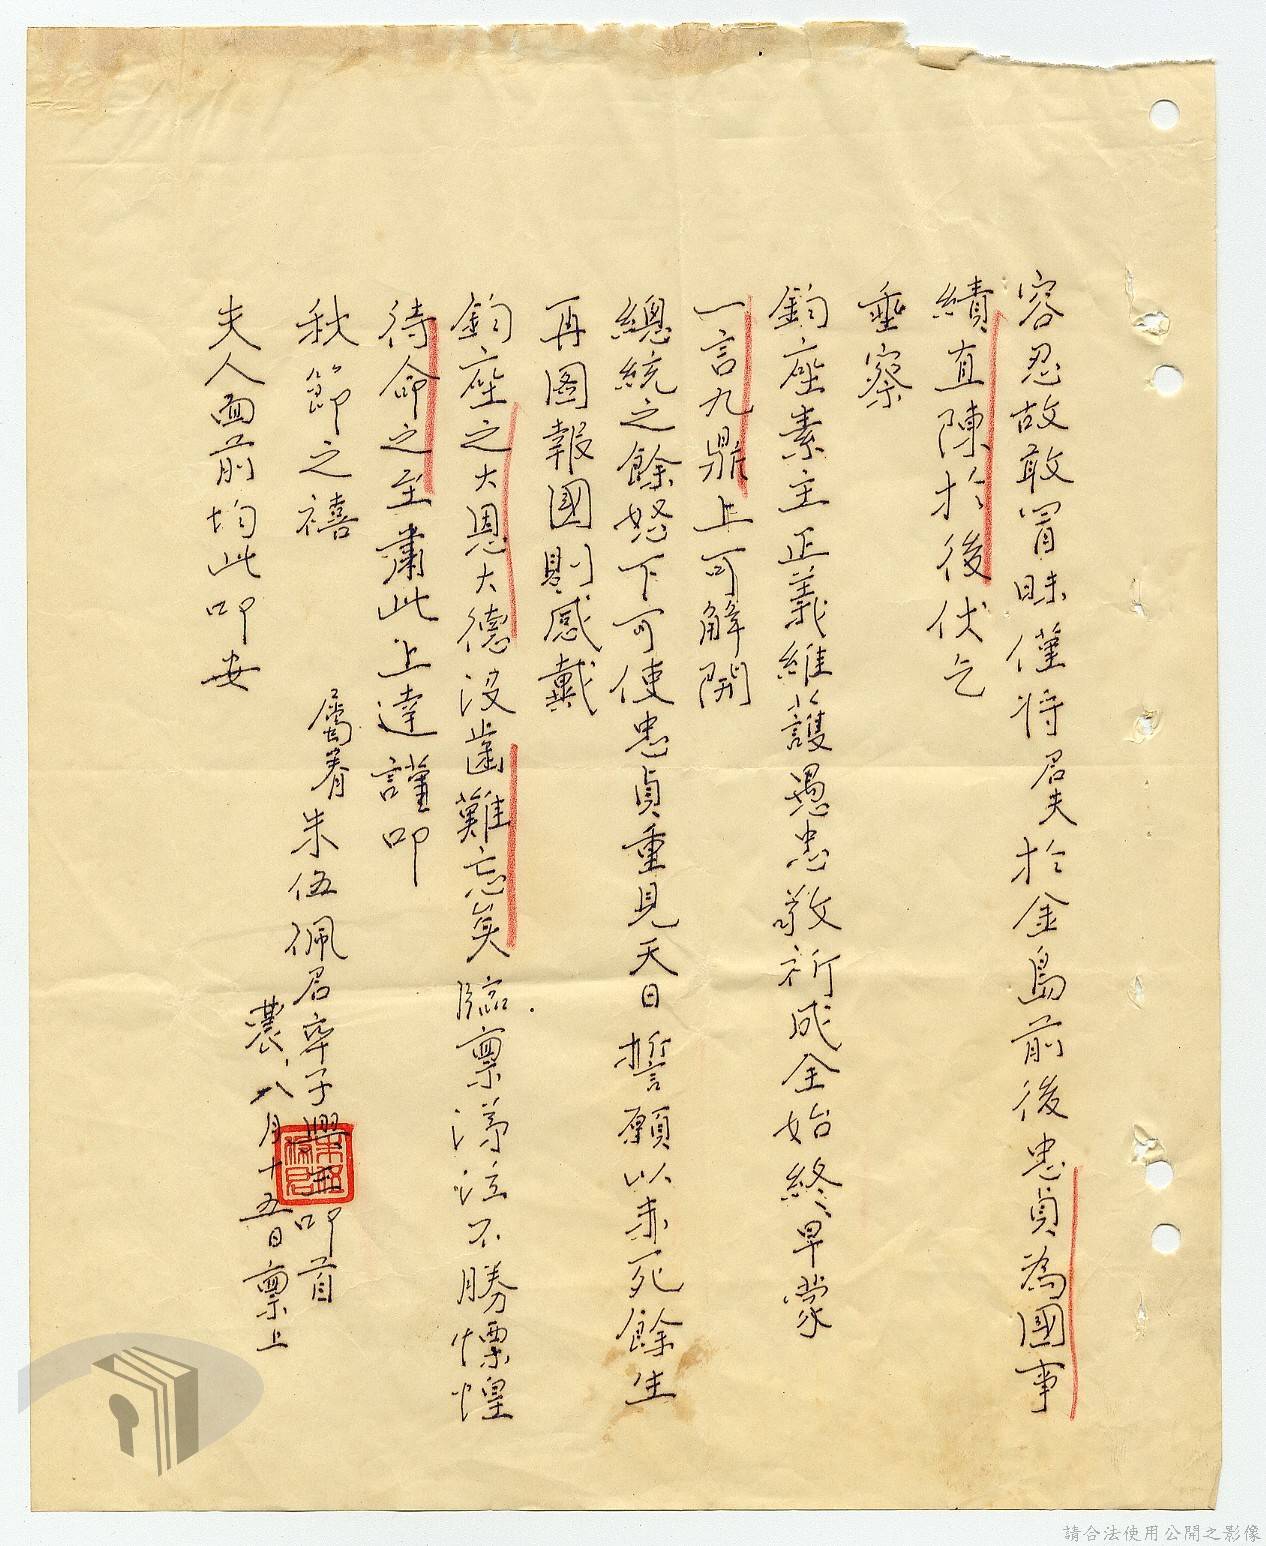 容忍故敢冒昧僅將君夫於金島前後忠貞為國事
績直陳於後伏乞
垂察
鈞座素主正義維護愚忠敬祈成全始終早蒙
一言九鼎上可解開
總統之餘怒下可使忠貞重見天日誓願以未死餘生
再图報國則感戴
鈞座之大恩大德没齒難忘矣臨稟涕泣不勝慄惶
待命之至肅此上達謹叩
秋節之禧
屬眷朱伍佩君率子興 叩首
農八月十五日稟上
夫人面前均此叩安
請合法使用公開之影像